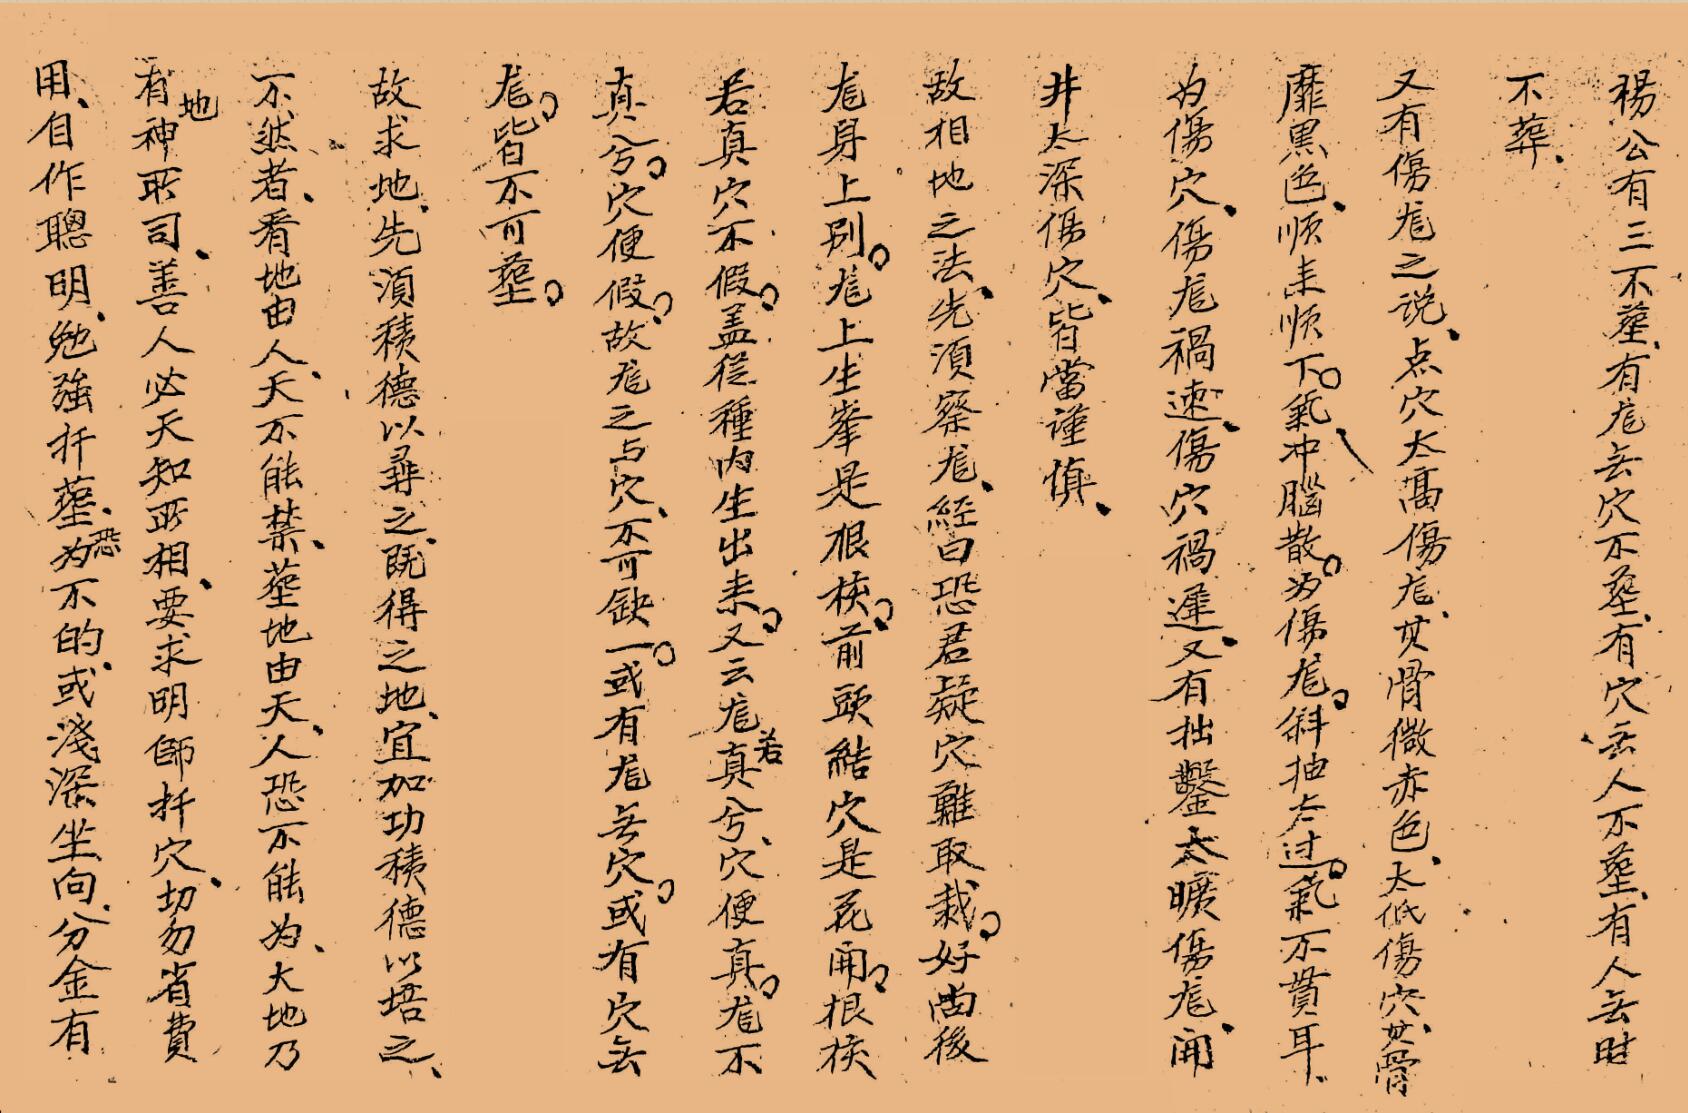 楊公有三不塟、有龙无穴不塟、有穴无人不塟、有人无时
不葬、
又有傷龙之说、点穴太高傷龙、其骨微赤色、太低傷穴、其骨
靡黒色、顺来顺下。氣冲腦散。为傷龙。斜抽太过。氣不貫耳、
为傷穴、傷龙禍速、傷穴禍遲、又有拙鑿太曠傷龙、開
井太深傷穴、皆當谨慎、
故相地之法、先須察龙、経曰恐君疑穴難取裁。好向後
龙身上别。龙上生峯是根核。前頭結穴是花開。根核
若真穴不假。盖從種内生出来。又云龙若真兮、穴便真。龙不
真兮。穴便假。故龙之与穴、不可缺一。或有龙无穴。或有穴无
龙。皆不可塟。
故求地、先須積德以尋之、既得之地、宜加功積德以培之、
不然者、看地由人、天不能禁、塟地由天、人恐不能为、大地乃
有地神所司、善人必天知所相、要求明師扦穴、切勿省費
用、自作聰明、勉强扦塟、恐为不的、或淺深坐向、分金有